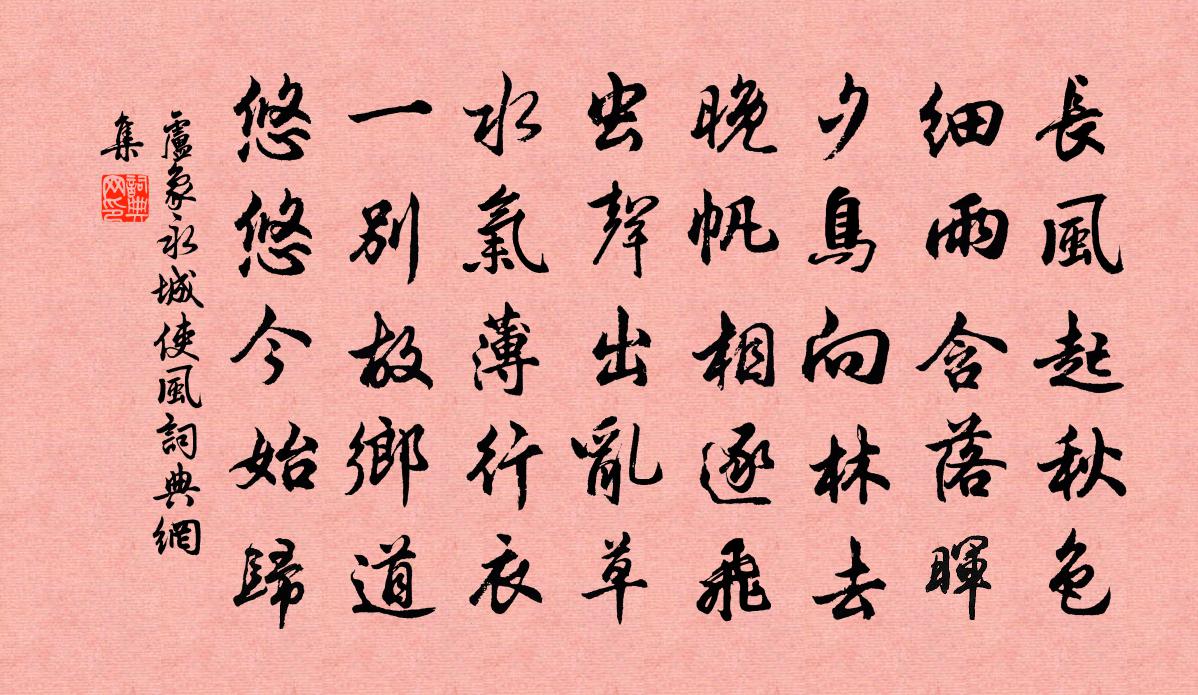 長風起秋色
細雨含落暉
夕鳥向林去
晚帆相逐飛
虫聲出亂草
水氣薄行衣
一別故鄉道
悠悠今始歸
盧象永城使風詞典網
集
詞典
网印